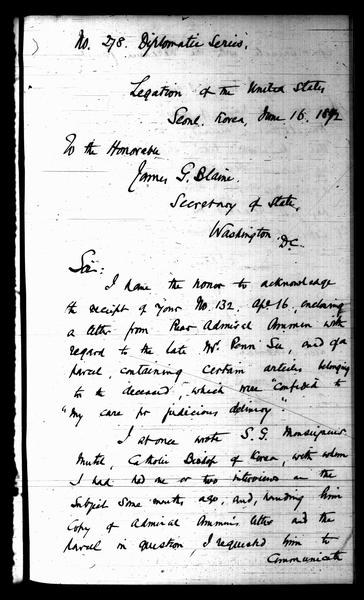 No. 278. Diplomatic Series.
Legation of the United States
Seoul. Korea, June 16. 1892
To the Honorable
James G. Blaine.
Secretary of State,
Washington
D.C.
Sir:
I have the honor to acknowledge
the receipt of your No. 132, Apl 16, enclosing
a letter from Rear Admiral Ammen with
regard to the late Mr. Penn Su, and of a
parcel, containing certain articles belonging
to the deceased, which were "confided to
"my care for judicious delivery."
I at once wrote S. G. Monseigneur
Mutel, Catholic Bishop of Korea, with whom
I had had one or two interviews on the
Subject some months ago, and, handing him
Copy of Admiral Ammen's letter and the
parcel in question, I requested him to
Communicate